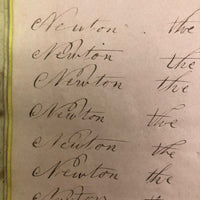 Newton . the
Newton the
Newton the
Newton the
Newton the
Newton the
Newton the